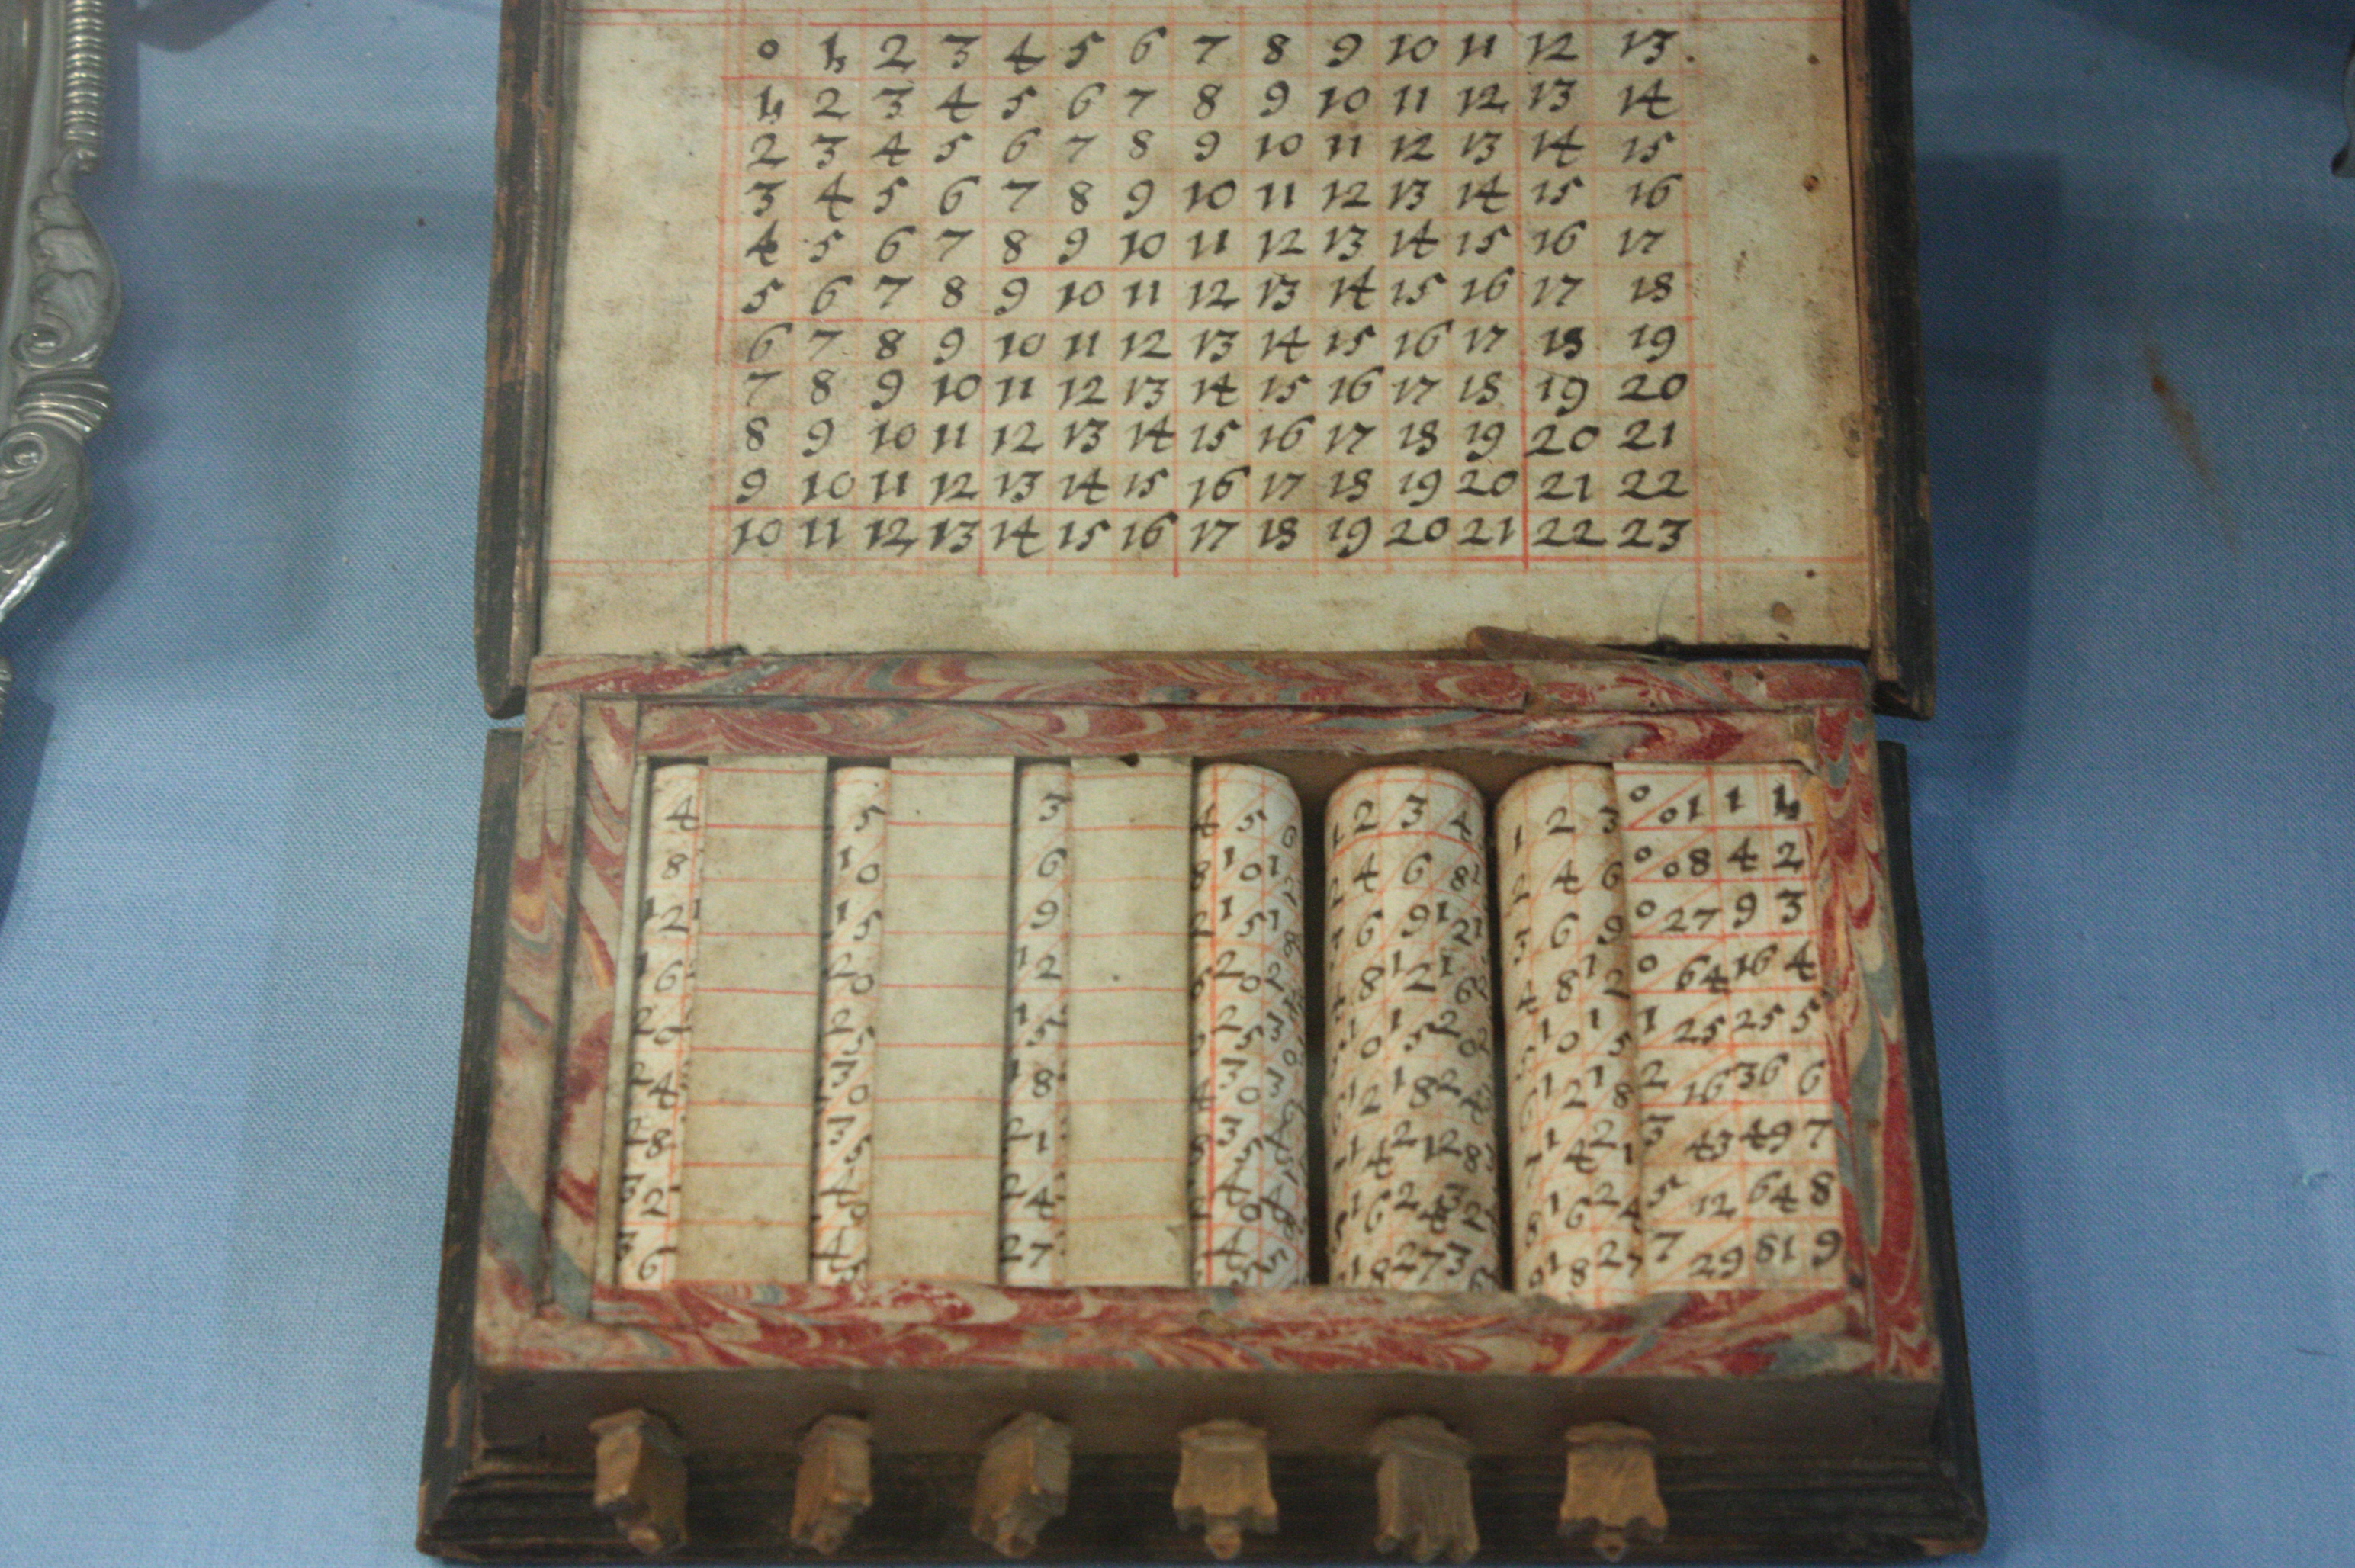 0 1 2 3 4 5 6 7 8 9 10 11 12 13.
1 2 3 4 5 6 7 8 9 10 11 12 13 14
2 3 4 5 6 7 8 9 10 11 12 13 14 15
3 4 5 6 7 8 9 10 11 12 13 14 15 16
4 5 6 7 8 9 10 11 12 13 14 15 16 17
5 6 7 8 9 10 11 12 13 14 15 16 17 18
6 7 8 9 10 11 12 13 14 15 16 17 18 19
7 8 9 10 11 12 13 14 15 16 17 18 19 20
8 9 10 11 12 13 14 15 16 17 18 19 20 21
9 10 11 12 13 14 15 16 17 18 19 20 21 22
10 11 12 13 14 15 16 17 18 19 20 21 22 23
4 5 3 4 5 6 1 2 3 4 1 2 3 0 01 1 1
8 10 6 8 10 1 2 4 6 8 2 4 6 0 08 4 2
12 15 9 2 15 1 6 9 12 3 6 9 0 27 9 3
16 20 12 6 20 2 8 12 16 4 8 12 0 64 16 4
2 25 15 25 3 10 15 20 10 15 1 25 25 5
24 30 18 4 30 3 12 18 24 12 18 2 16 36 6
28 35 21 35 14 21 28 14 21 3 43 49 7
32 40 24 40 16 24 32 16 24 5 12 64 8
36 4 27 4 18 27 3 18 27 7 29 81 9